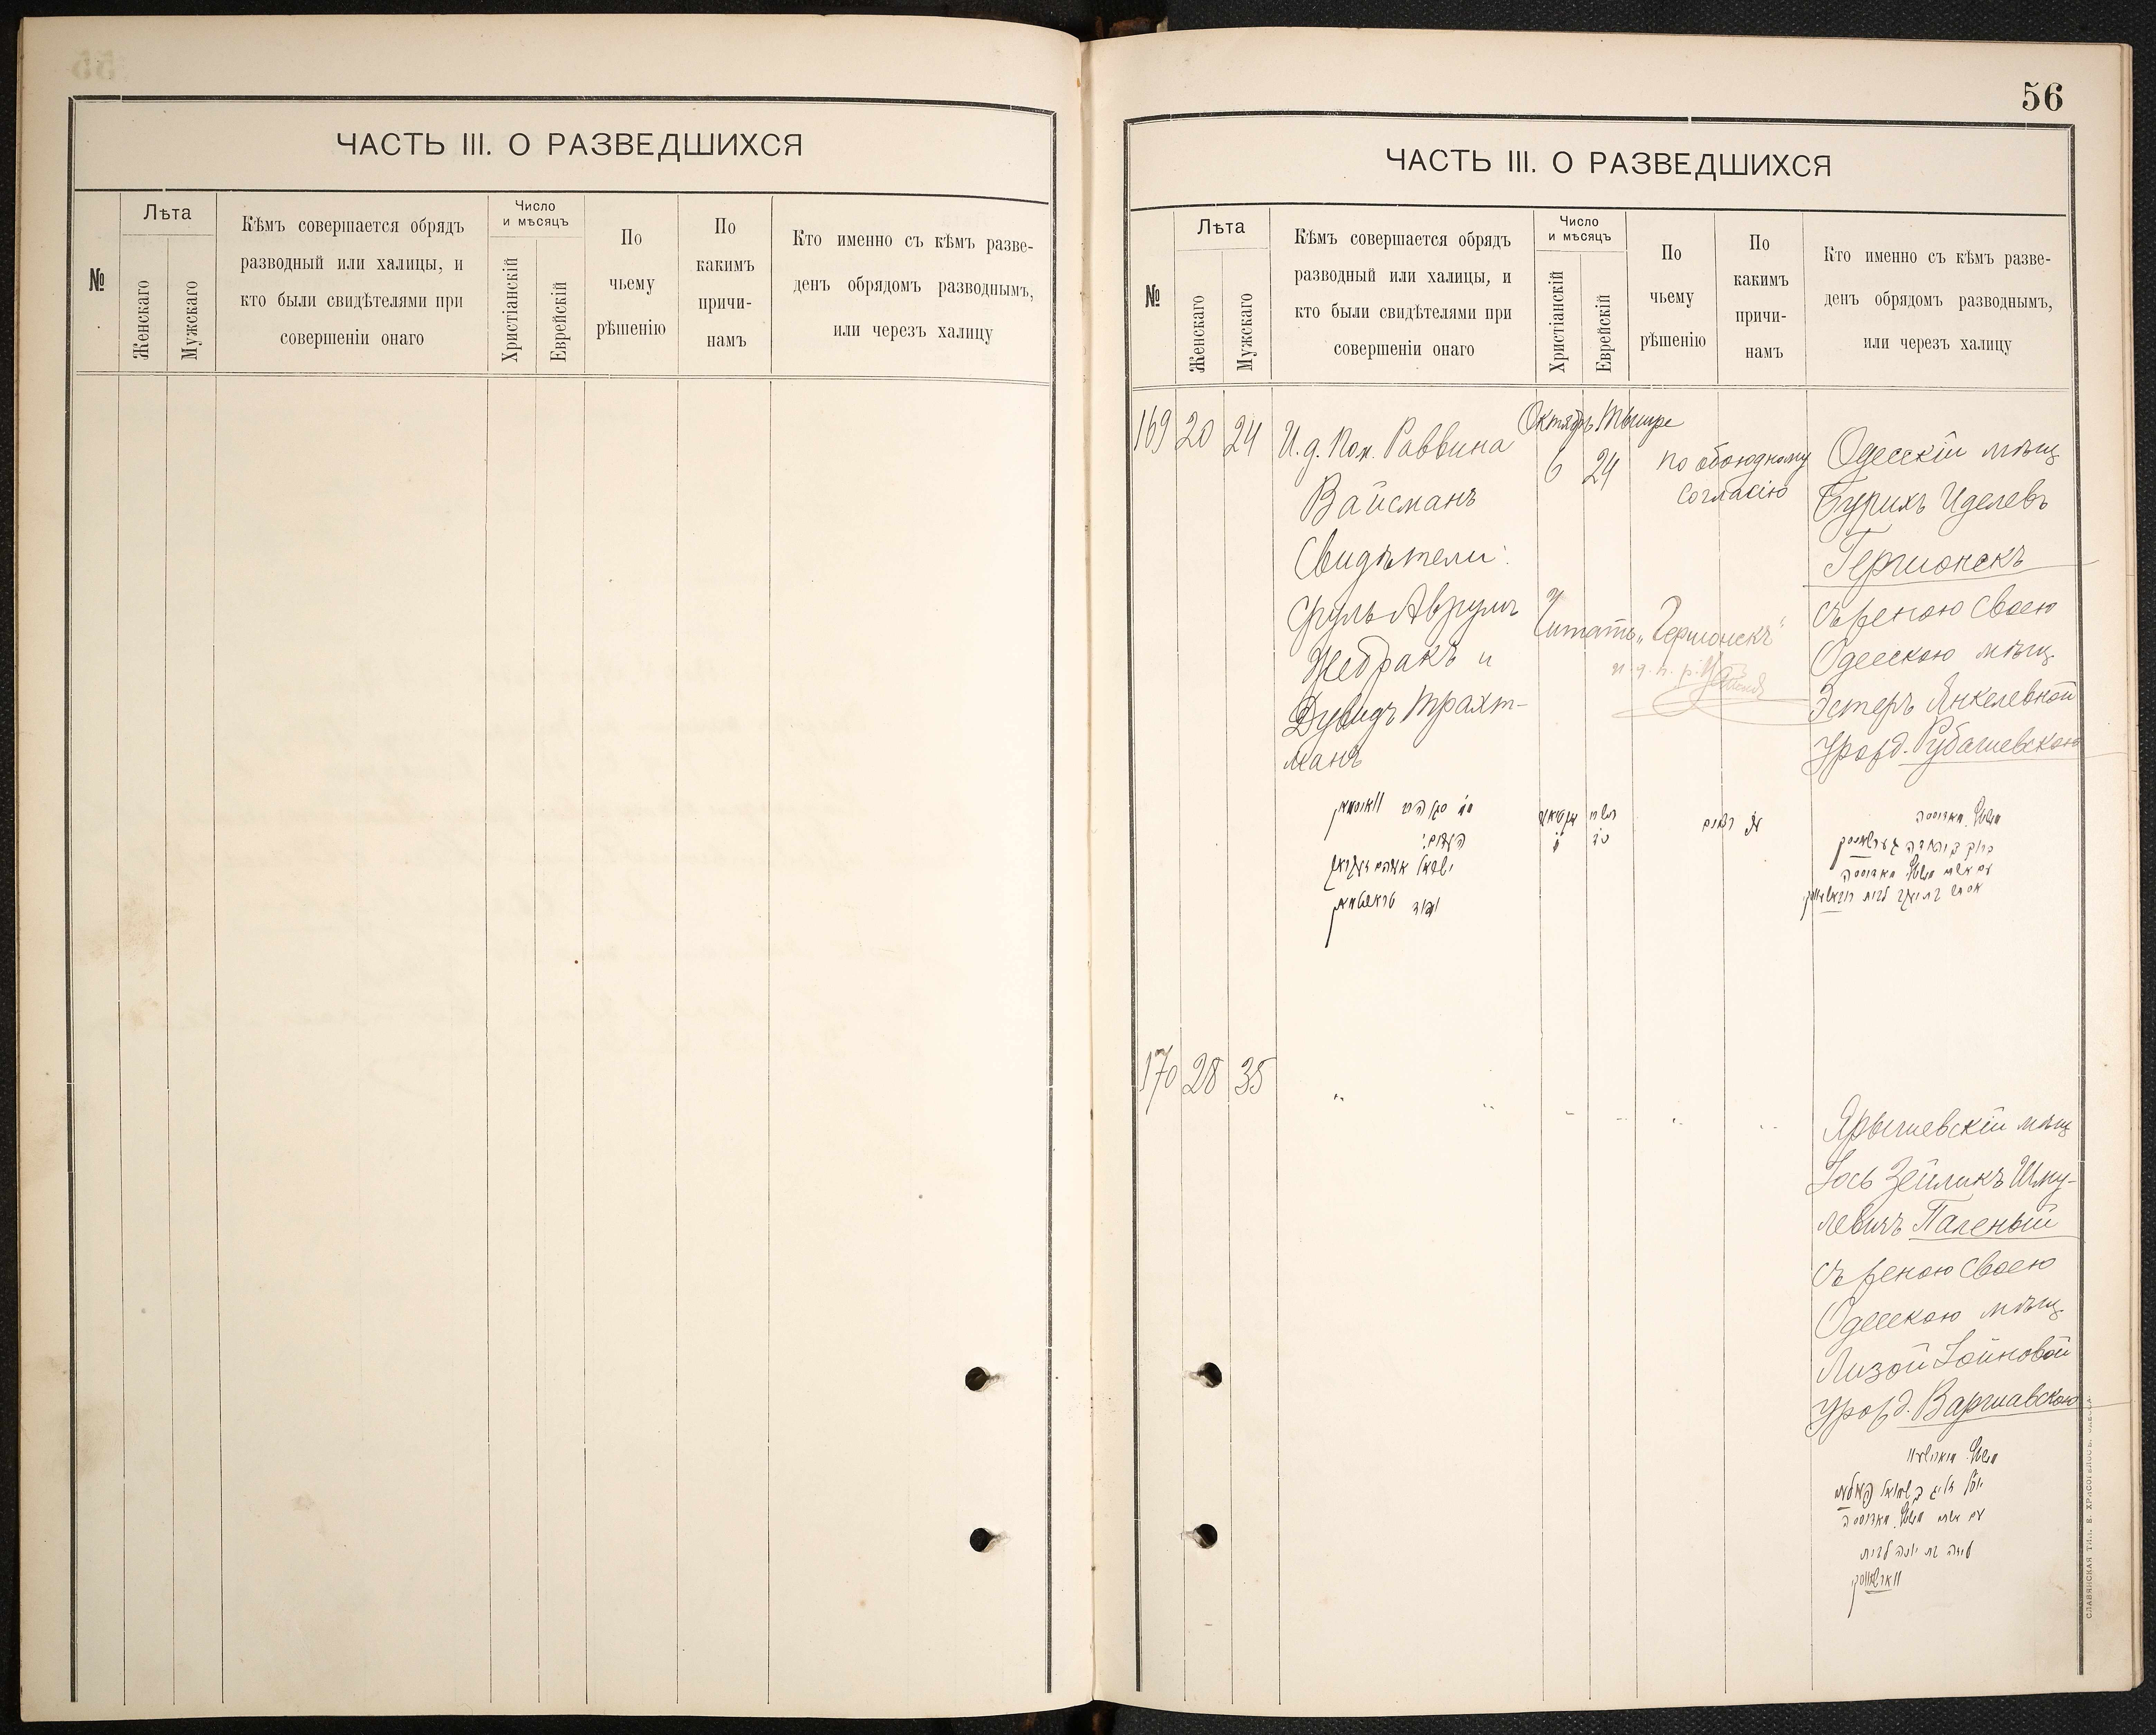 ЧАСТЬ III. О РАЗВЕДШИХСЯ
№
Лѣта
Женскаго
Мужскаго
Кѣмъ совершается обрядъ
разводный или халицы, и
кто были свидѣтелями при
совершеніи онаго
Число
и мѣсяцъ
Христіанскій
Еврейскій
По
чьему
рѣшенію
По
какимъ
причи-
намъ
Кто именно съ кѣмъ разве-
денъ обрядомъ разводнымъ,
или черезъ халицу
56
ЧАСТЬ III. О РАЗВЕДШИХСЯ
№
Лѣта
Женскаго
Мужскаго
Кѣмъ совершается обрядъ
разводный или халицы, и
кто были свидѣтелями при
совершеніи онаго
Число
и мѣсяцъ
Христіанскій
Еврейскій
По
чьему
рѣшенію
По
какимъ
причи-
намъ
Кто именно съ кѣмъ разве-
денъ обрядомъ разводнымъ,
или черезъ халицу
169 20 24
И. д. Пом. Раввина
Вайсманъ
Свидѣтели:
Сруль Аврумъ
Жебракъ и
Дувидъ Трахт-
манъ
Октябрь Тышре
6 24
по обоюдному
согласію
Читать „Гершонскъ"
и. д. п. р.
Одесскій мѣщ
Бурихъ Иделевъ
Гершонскъ
съ женою своею
Одесскою мѣщ.
Эстеръ Янкелевной
урожд. Рубашевскою
העדים:
ישראל אברהם זעבראק
ודוד טראכטמאן
תשרי
כד
ברוך ב יודא גערשאנסק
עם אשתו
אסתר בת יעקב לבית רובאשעווסקי
170 28 35
Ярышевскій мѣщ
Іось Зейликъ Шму-
левичъ Паленый
съ женою своею
Одесскою мѣщ
Лизой Іойновой
урожд. Варшавскою
עם אשתו
ליזה בת יונה לבית
ווארשאווסקי